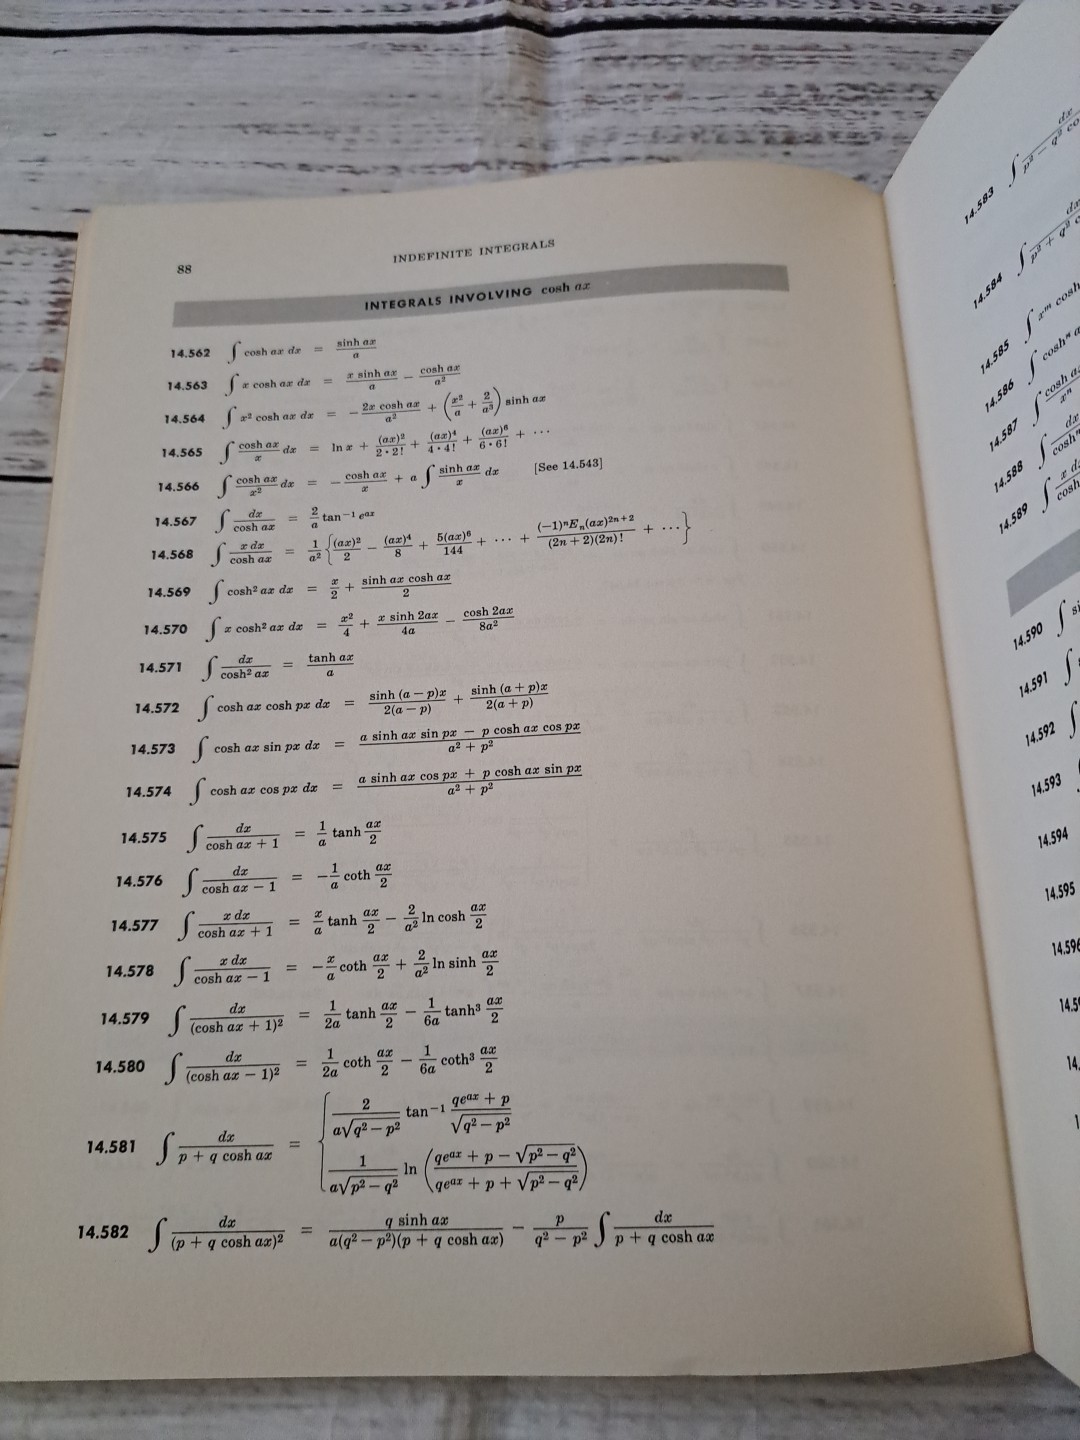 88
INDEFINITE INTEGRALS
INTEGRALS INVOLVING cosh ax
14.562 ∫ cosh ax dx = sinh ax / a
14.563 ∫ x cosh ax dx = x sinh ax / a − cosh ax / a²
14.564 ∫ x² cosh ax dx = − 2x cosh ax / a² + (x²/a + 2/a³) sinh ax
14.565 ∫ cosh ax / x dx = ln x + (ax)²/(2·2!) + (ax)⁴/(4·4!) + (ax)⁶/(6·6!) + ···
14.566 ∫ cosh ax / x² dx = − cosh ax / x + a ∫ sinh ax / x dx [See 14.543]
14.567 ∫ dx / cosh ax = 2/a tan⁻¹ eᵃˣ
14.568 ∫ x dx / cosh ax = 1/a² {(ax)²/2 − (ax)⁴/8 + 5(ax)⁶/144 + ··· + (−1)ⁿEₙ(ax)²ⁿ⁺²/((2n + 2)(2n)!) + ···}
14.569 ∫ cosh² ax dx = x/2 + sinh ax cosh ax / 2
14.570 ∫ x cosh² ax dx = x²/4 + x sinh 2ax / 4a − cosh 2ax / 8a²
14.571 ∫ dx / cosh² ax = tanh ax / a
14.572 ∫ cosh ax cosh px dx = sinh (a − p)x / 2(a − p) + sinh (a + p)x / 2(a + p)
14.573 ∫ cosh ax sin px dx = (a sinh ax sin px − p cosh ax cos px) / (a² + p²)
14.574 ∫ cosh ax cos px dx = (a sinh ax cos px + p cosh ax sin px) / (a² + p²)
14.575 ∫ dx / (cosh ax + 1) = 1/a tanh ax/2
14.576 ∫ dx / (cosh ax − 1) = − 1/a coth ax/2
14.577 ∫ x dx / (cosh ax + 1) = x/a tanh ax/2 − 2/a² ln cosh ax/2
14.578 ∫ x dx / (cosh ax − 1) = − x/a coth ax/2 + 2/a² ln sinh ax/2
14.579 ∫ dx / (cosh ax + 1)² = 1/2a tanh ax/2 − 1/6a tanh³ ax/2
14.580 ∫ dx / (cosh ax − 1)² = 1/2a coth ax/2 − 1/6a coth³ ax/2
14.581 ∫ dx / (p + q cosh ax) = { 2/(a√(q² − p²)) tan⁻¹ (qeᵃˣ + p)/√(q² − p²)
1/(a√(p² − q²)) ln ((qeᵃˣ + p − √(p² − q²))/(qeᵃˣ + p + √(p² − q²)))
14.582 ∫ dx / (p + q cosh ax)² = q sinh ax / (a(q² − p²)(p + q cosh ax)) − p/(q² − p²) ∫ dx / (p + q cosh ax)
14.583 ∫ dx / p² − q² co
14.584 ∫ dx / p² + q² c
14.585 ∫ xᵐ cosh
14.586 ∫ coshⁿ a
14.587 ∫ cosh a / xⁿ
14.588 ∫ dx / coshⁿ
14.589 ∫ x d / cosh
14.590 ∫ si
14.591 ∫
14.592 ∫
14.593
14.594
14.595
14.596
14.5
14.